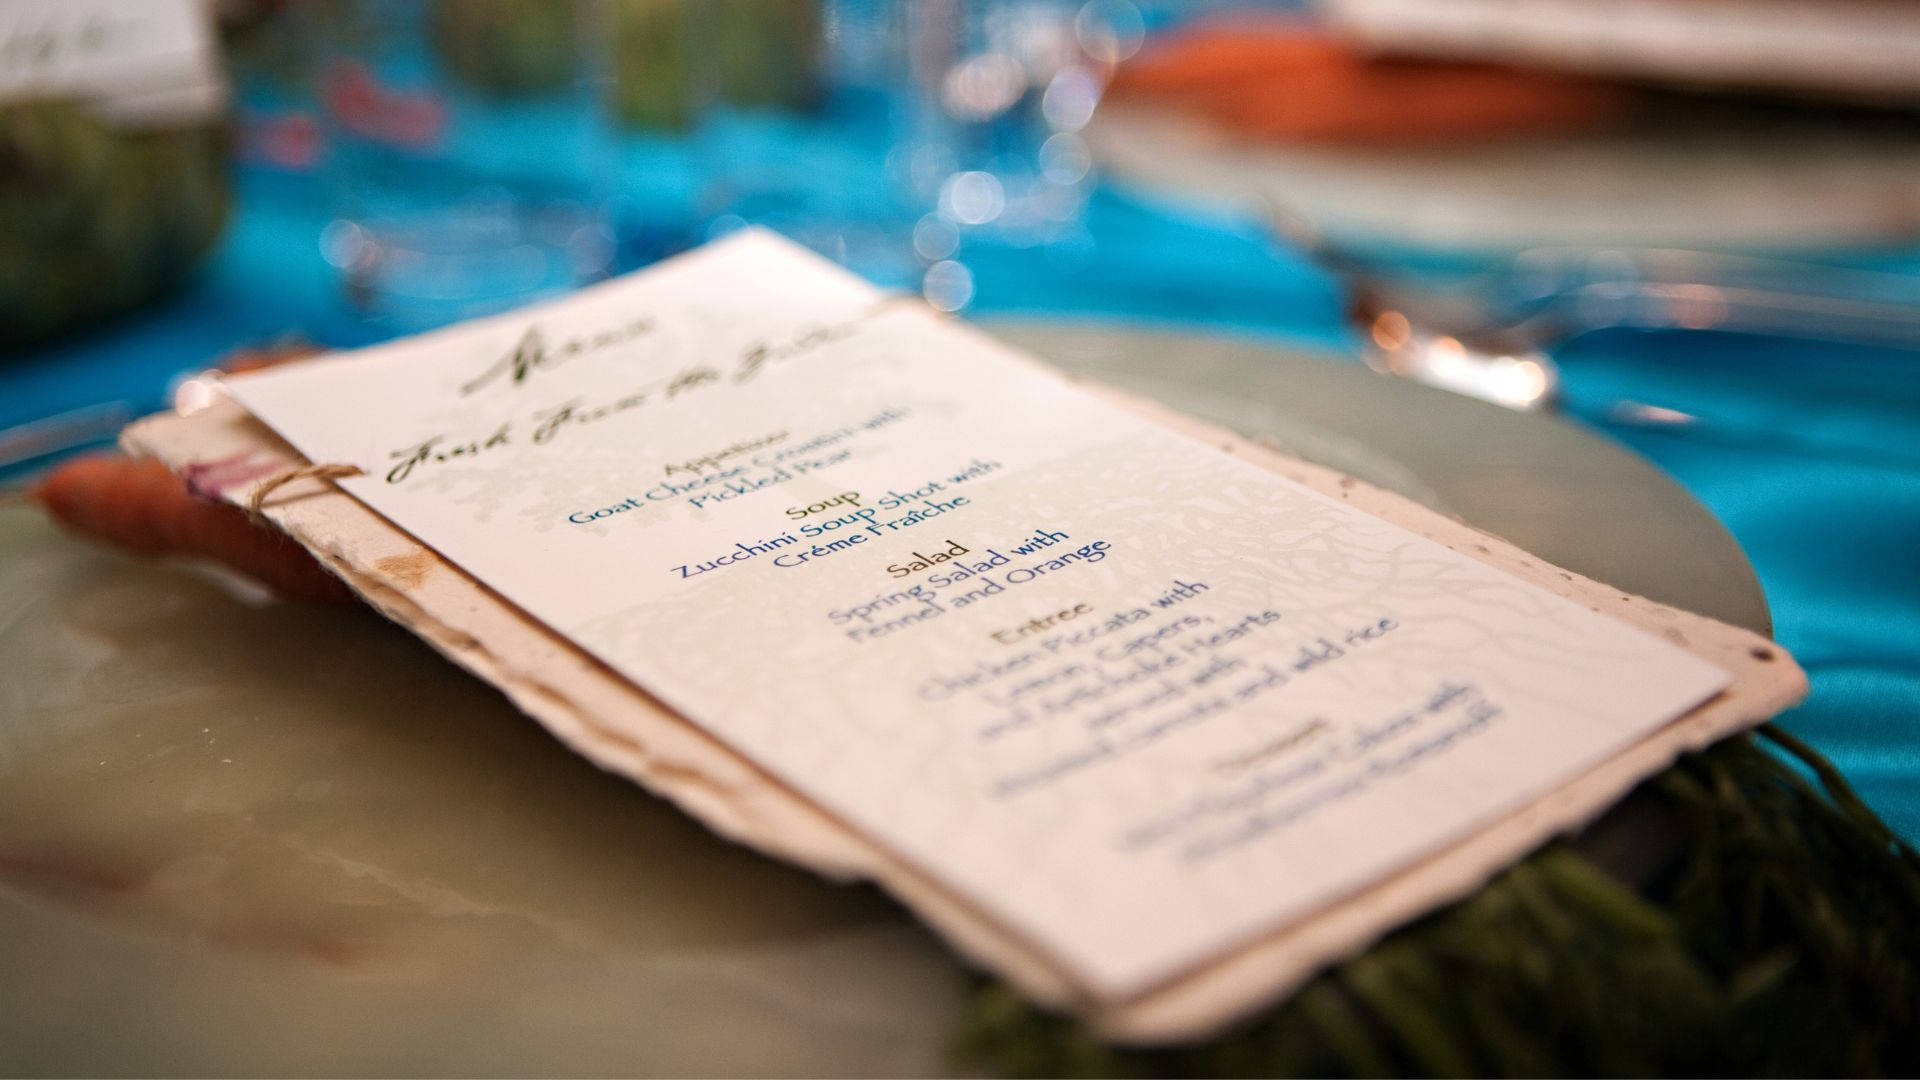 Menu
Fresh From the
Appetizer
Goat Cheese Crostini with
Pickled Pear
Soup
Zucchini Soup Shot with
Créme Fraîche
Salad
Spring Salad with
Fennel and Orange
Entree
Chicken Piccata with
Lemon, Capers,
and Artichoke Hearts
served with
Roasted carrots and wild rice
Dessert
with